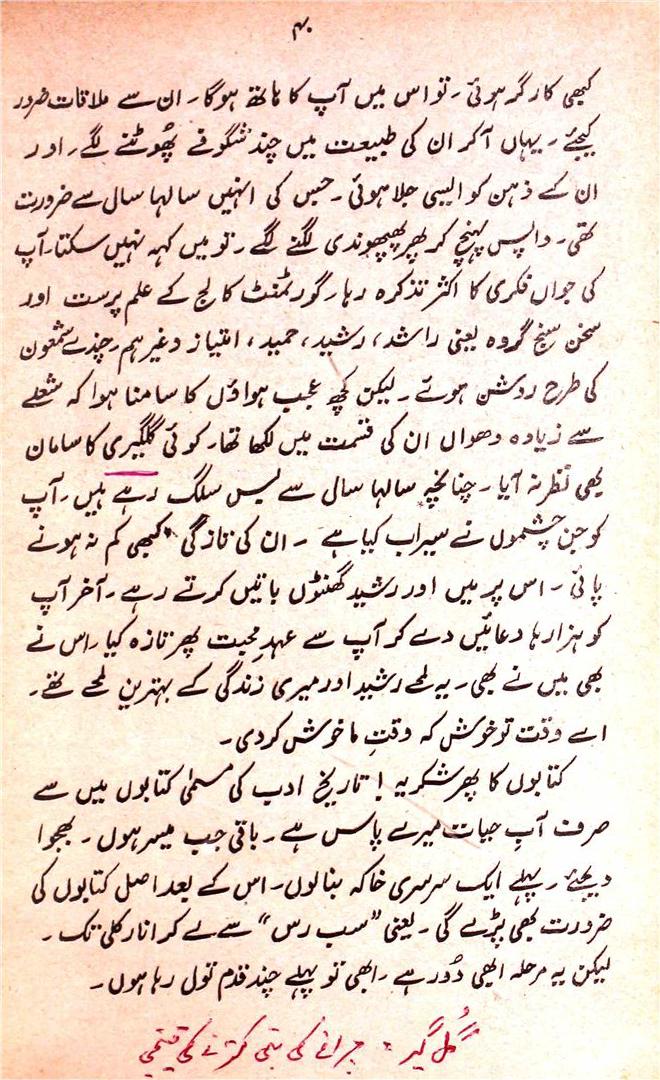 ۴۰
کبھی کارگر ہوئی ۔ تو اس میں آپ کا ہاتھ ہوگا ۔ ان سے ملاقات ضرور
کیجئے ۔ یہاں آکر ان کی طبیعت میں چند شگوفے پھُوٹنے لگے ۔ اور
ان کے ذہن کو ایسی جلا ہوئی ۔ جس کی انہیں سالہا سال سے ضرورت
تھی ۔ واپس پہنچ کر پھر پھپھوندی لگنے لگے ۔ تو میں کہہ نہیں سکتا ۔ آپ
کی جواں فکری کا اکثر تذکرہ رہا ۔ گورنمنٹ کالج کے علم پرست اور
سخن سنج گروہ یعنی راشد ، رشید ، حمید ، امتیاز وغیرہم ۔ چندے شمعوں
کی طرح روشن ہوئے ۔ لیکن کچھ عجب ہواؤں کا سامنا ہوا کہ شعلے
سے زیادہ دھواں ان کی قسمت میں لکھا تھا ۔ کوئی گلگیری کا سامان
بھی نظر نہ آیا ۔ چنانچہ سالہا سال سے بس سلگ رہے ہیں ۔ آپ
کو جن چشموں نے سیراب کیا ہے ۔ ان کی تازگی کبھی کم نہ ہونے
پائی ۔ اس پر میں اور رشید گھنٹوں باتیں کرتے رہے ۔ آخر آپ
کو ہزارہا دعائیں دے کر آپ سے عہدِ محبت پھر تازہ کیا ۔ اس نے
بھی میں نے بھی ۔ یہ لمحے رشید اور میری زندگی کے بہترین لمحے تھے ۔
اے وقت تو خوش کہ وقتِ ما خوش کردی ۔
کتابوں کا پھر شکریہ ! تاریخ ادب کی مسمیٰ کتابوں میں سے
صرف آبِ حیات میرے پاس ہے ۔ باقی جب میسر ہوں ۔ بھجوا
دیجئے ۔ پہلے ایک سرسری خاکہ بنا لوں ۔ اس کے بعد اصل کتابوں کی
ضرورت بھی پڑے گی ۔ یعنی ”سب رس“ سے لے کر انارکلی تک ۔
لیکن یہ مرحلہ ابھی دُور ہے ۔ ابھی تو پہلے چند قدم تول رہا ہوں ۔
گُل گیر : چراغ کی بتی کترنے کی قینچی